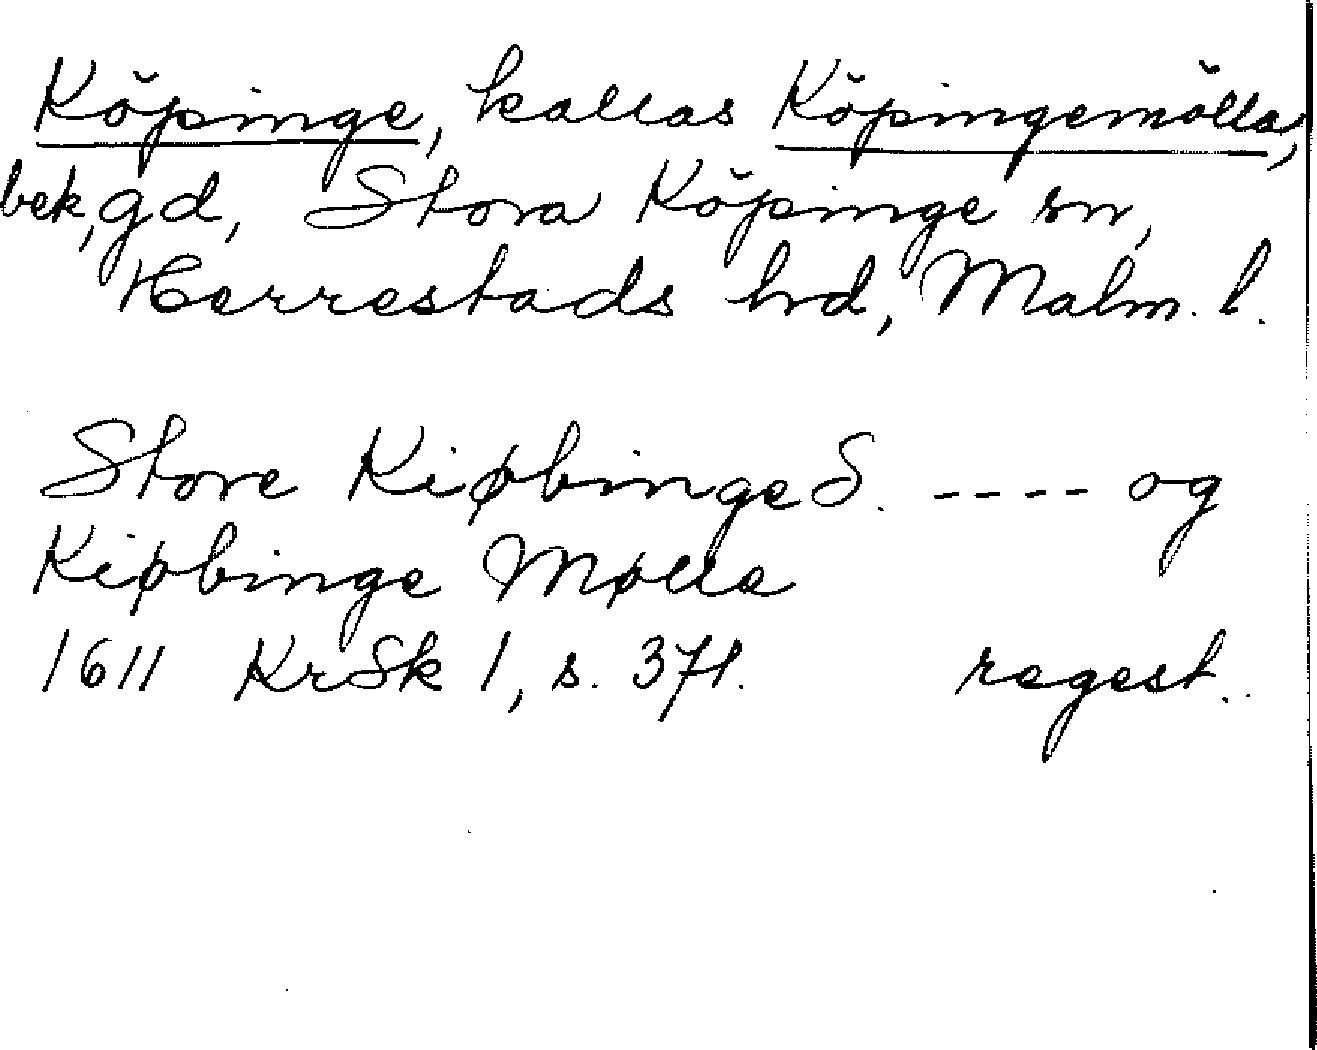 Köpinge, kallas Köpingemölla,
bek, gd, Stora Köpinge sn,
Herrestads hd, Malm. l.
Store Kiøbinge S. ---- og
Kiøbinge Mølle
1611 KrSk 1, s. 371. regest.